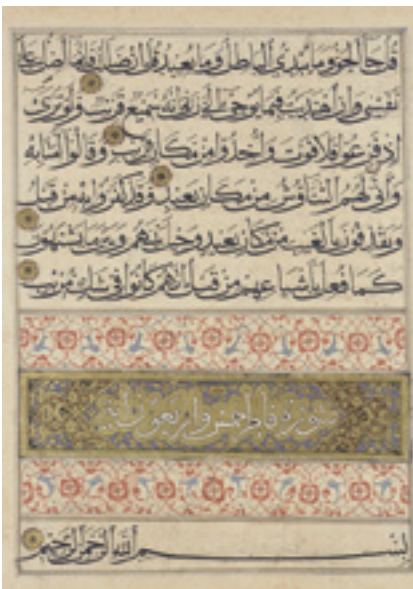 قل جا الحق وما يبدئ الباطل وما يعيد قل ان ضللت فانما اضل على
نفسي وان اهتديت فبما يوحي الي ربي انه سميع قريب ولو ترى
اذ فزعوا فلا فوت واخذوا من مكان قريب وقالوا امنا به
وانى لهم التناوش من مكان بعيد وقد كفروا به من قبل
ويقذفون بالغيب من مكان بعيد وحيل بينهم وبين ما يشتهون
كما فعل باشياعهم من قبل انهم كانوا في شك مريب
سورة فاطر خمس واربعون اية
بسم الله الرحمن الرحيم